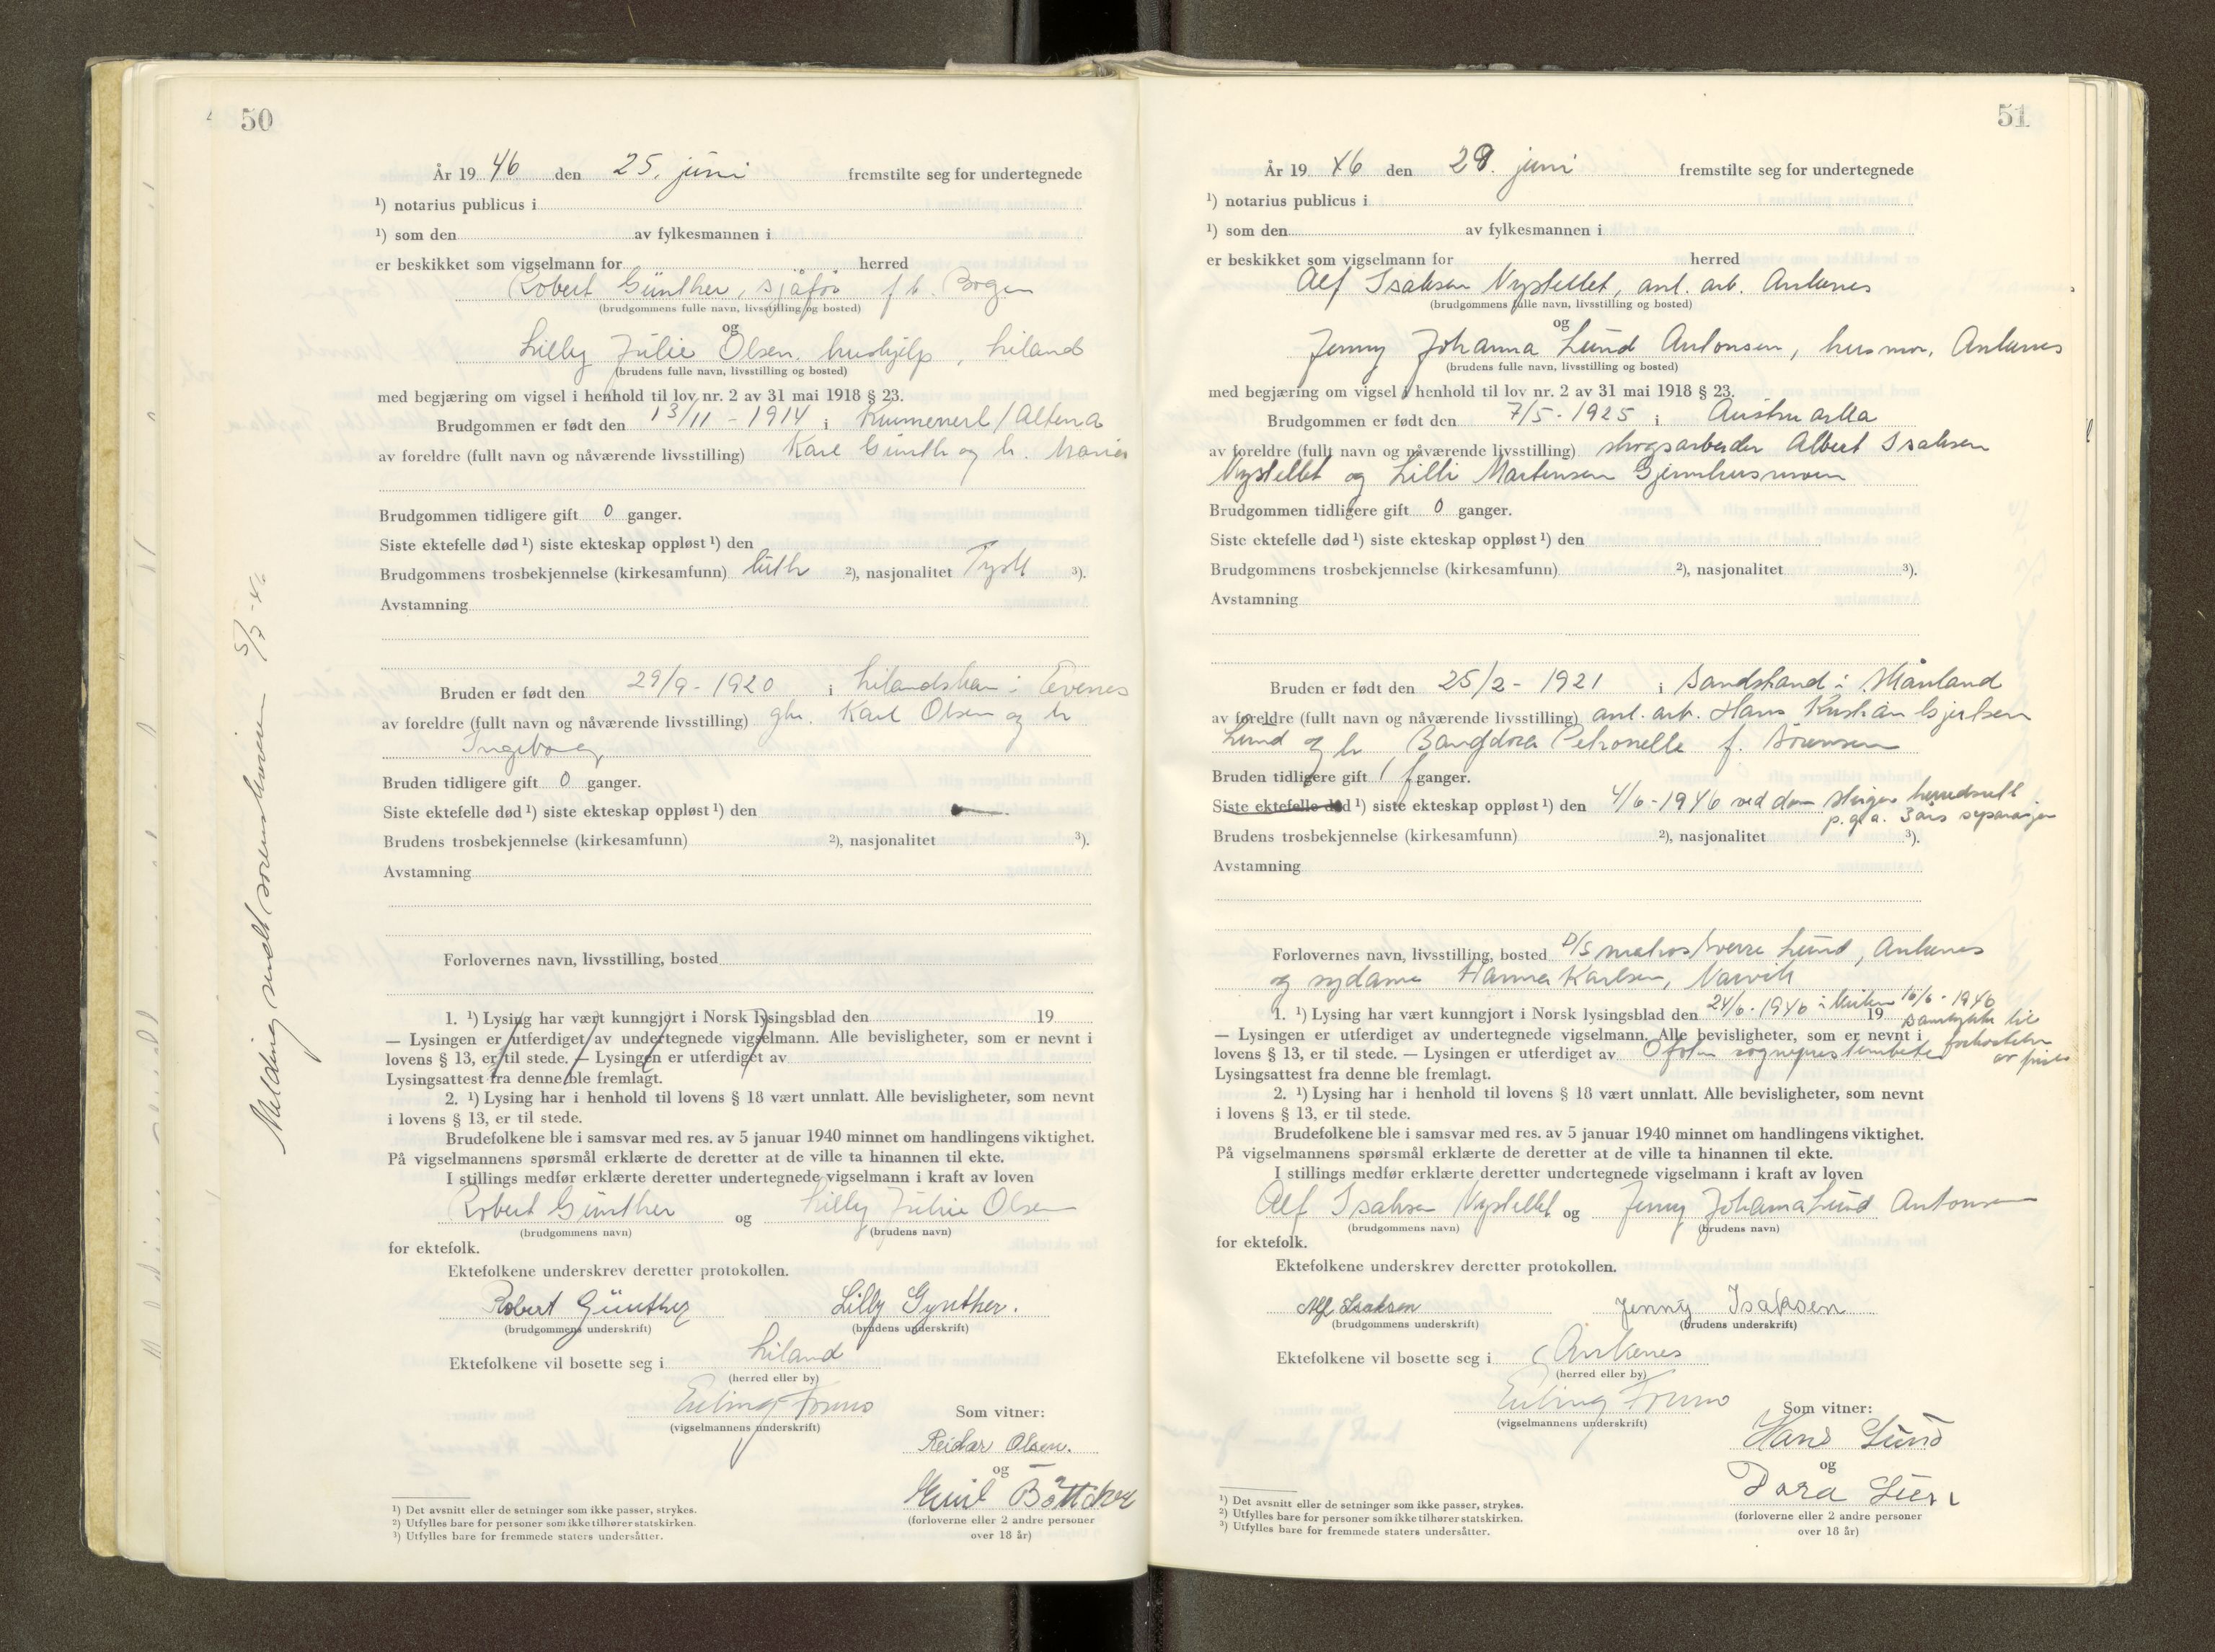 50
År 19 46 den 25. juni fremstilte seg for undertegnede
¹) notarius publicus i
¹) som den av fylkesmannen i
er beskikket som vigselmann for herred
Robert Günther, sjåfør f.t. Bogen
(brudgommens fulle navn, livsstilling og bosted)
og
Lilly Julie Olsen, hushjelp, Liland
(brudens fulle navn, livsstilling og bosted)
med begjæring om vigsel i henhold til lov nr. 2 av 31 mai 1918 § 23.
Brudgommen er født den 13/11 - 1914 i / Altena
av foreldre (fullt navn og nåværende livsstilling) Karl Günth og h. Maria
Brudgommen tidligere gift 0 ganger.
Siste ektefelle død ¹) siste ekteskap oppløst ¹) den
Brudgommens trosbekjennelse (kirkesamfunn) luth ²), nasjonalitet Tysk ³).
Avstamning
Bruden er født den 29/9 - 1920 i i Evenes
av foreldre (fullt navn og nåværende livsstilling) gbr. Karl Olsen og h
Ingeborg
Bruden tidligere gift 0 ganger.
Siste ektefelle død ¹) siste ekteskap oppløst ¹) den
Brudens trosbekjennelse (kirkesamfunn) ²), nasjonalitet ³).
Avstamning
Forlovernes navn, livsstilling, bosted
1. ¹) Lysing har vært kunngjort i Norsk lysingsblad den 19
— Lysingen er utferdiget av undertegnede vigselmann. Alle bevisligheter, som er nevnt i
lovens § 13, er til stede. — Lysingen er utferdiget av
Lysingsattest fra denne ble fremlagt.
2. ¹) Lysing har i henhold til lovens § 18 vært unnlatt. Alle bevisligheter, som nevnt
i lovens § 13, er til stede.
Brudefolkene ble i samsvar med res. av 5 januar 1940 minnet om handlingens viktighet.
På vigselmannens spørsmål erklærte de deretter at de ville ta hinannen til ekte.
I stillings medfør erklærte deretter undertegnede vigselmann i kraft av loven
Robert Günther og Lilly Julie Olsen
(brudgommens navn) (brudens navn)
for ektefolk.
Ektefolkene underskrev deretter protokollen.
Robert Günther Lilly Gynther.
(brudgommens underskrift) (brudens underskrift)
Ektefolkene vil bosette seg i Liland
(herred eller by)
Erling
(vigselmannens underskrift)
Som vitner:
Reidar Olsen.
og
Emil Böttcher
(forloverne eller 2 andre personer
over 18 år)
¹) Det avsnitt eller de setninger som ikke passer, strykes.
²) Utfylles bare for personer som ikke tilhører statskirken.
³) Utfylles bare for fremmede staters undersåtter.
Melding sendt sorenskriveren 5/7 - 46
51
År 19 46 den 28. juni fremstilte seg for undertegnede
¹) notarius publicus i
¹) som den av fylkesmannen i
er beskikket som vigselmann for herred
Alf Isaksen Nystellet, anl. arb. Ankenes
(brudgommens fulle navn, livsstilling og bosted)
og
Jenny Johanna Lund Antonsen, husmor, Ankenes
(brudens fulle navn, livsstilling og bosted)
med begjæring om vigsel i henhold til lov nr. 2 av 31 mai 1918 § 23.
Brudgommen er født den 7/5 - 1925 i
av foreldre (fullt navn og nåværende livsstilling) skogsarbeider Albert Isaksen
Nystellet og Lilli Martensen
Brudgommen tidligere gift 0 ganger.
Siste ektefelle død ¹) siste ekteskap oppløst ¹) den
Brudgommens trosbekjennelse (kirkesamfunn) ²), nasjonalitet ³).
Avstamning
Bruden er født den 25/2 - 1921 i Sandstrand i Skånland
av foreldre (fullt navn og nåværende livsstilling) anl. arb. Hans Kristian
Lund og h. Petronelle f. Sørensen
Bruden tidligere gift 1 ganger.
Siste ektefelle død ¹) siste ekteskap oppløst ¹) den 4/6 - 1946 ved dom herredsrett
p. g. a. 3 års separasjon
Brudens trosbekjennelse (kirkesamfunn) ²), nasjonalitet ³).
Avstamning
Forlovernes navn, livsstilling, bosted D/S matros Sverre Lund, Ankenes
og sydame Hanna Karlsen, Narvik
1. ¹) Lysing har vært kunngjort i Norsk lysingsblad den 24/6 - 1946 i kirken 16/6 - 1946 19
samtykke til
— Lysingen er utferdiget av undertegnede vigselmann. Alle bevisligheter, som er nevnt i
forkortelse
lovens § 13, er til stede. — Lysingen er utferdiget av Ofoten sogneprestembete
Lysingsattest fra denne ble fremlagt.
2. ¹) Lysing har i henhold til lovens § 18 vært unnlatt. Alle bevisligheter, som nevnt
i lovens § 13, er til stede.
Brudefolkene ble i samsvar med res. av 5 januar 1940 minnet om handlingens viktighet.
På vigselmannens spørsmål erklærte de deretter at de ville ta hinannen til ekte.
I stillings medfør erklærte deretter undertegnede vigselmann i kraft av loven
Alf Isaksen Nystellet og Jenny Johanna Lund Antonsen
(brudgommens navn) (brudens navn)
for ektefolk.
Ektefolkene underskrev deretter protokollen.
Alf Isaksen Jenny Isaksen
(brudgommens underskrift) (brudens underskrift)
Ektefolkene vil bosette seg i Ankenes
(herred eller by)
Erling
(vigselmannens underskrift)
Som vitner:
Hans Lund
og
Dora Lund
(forloverne eller 2 andre personer
over 18 år)
¹) Det avsnitt eller de setninger som ikke passer, strykes.
²) Utfylles bare for personer som ikke tilhører statskirken.
³) Utfylles bare for fremmede staters undersåtter.